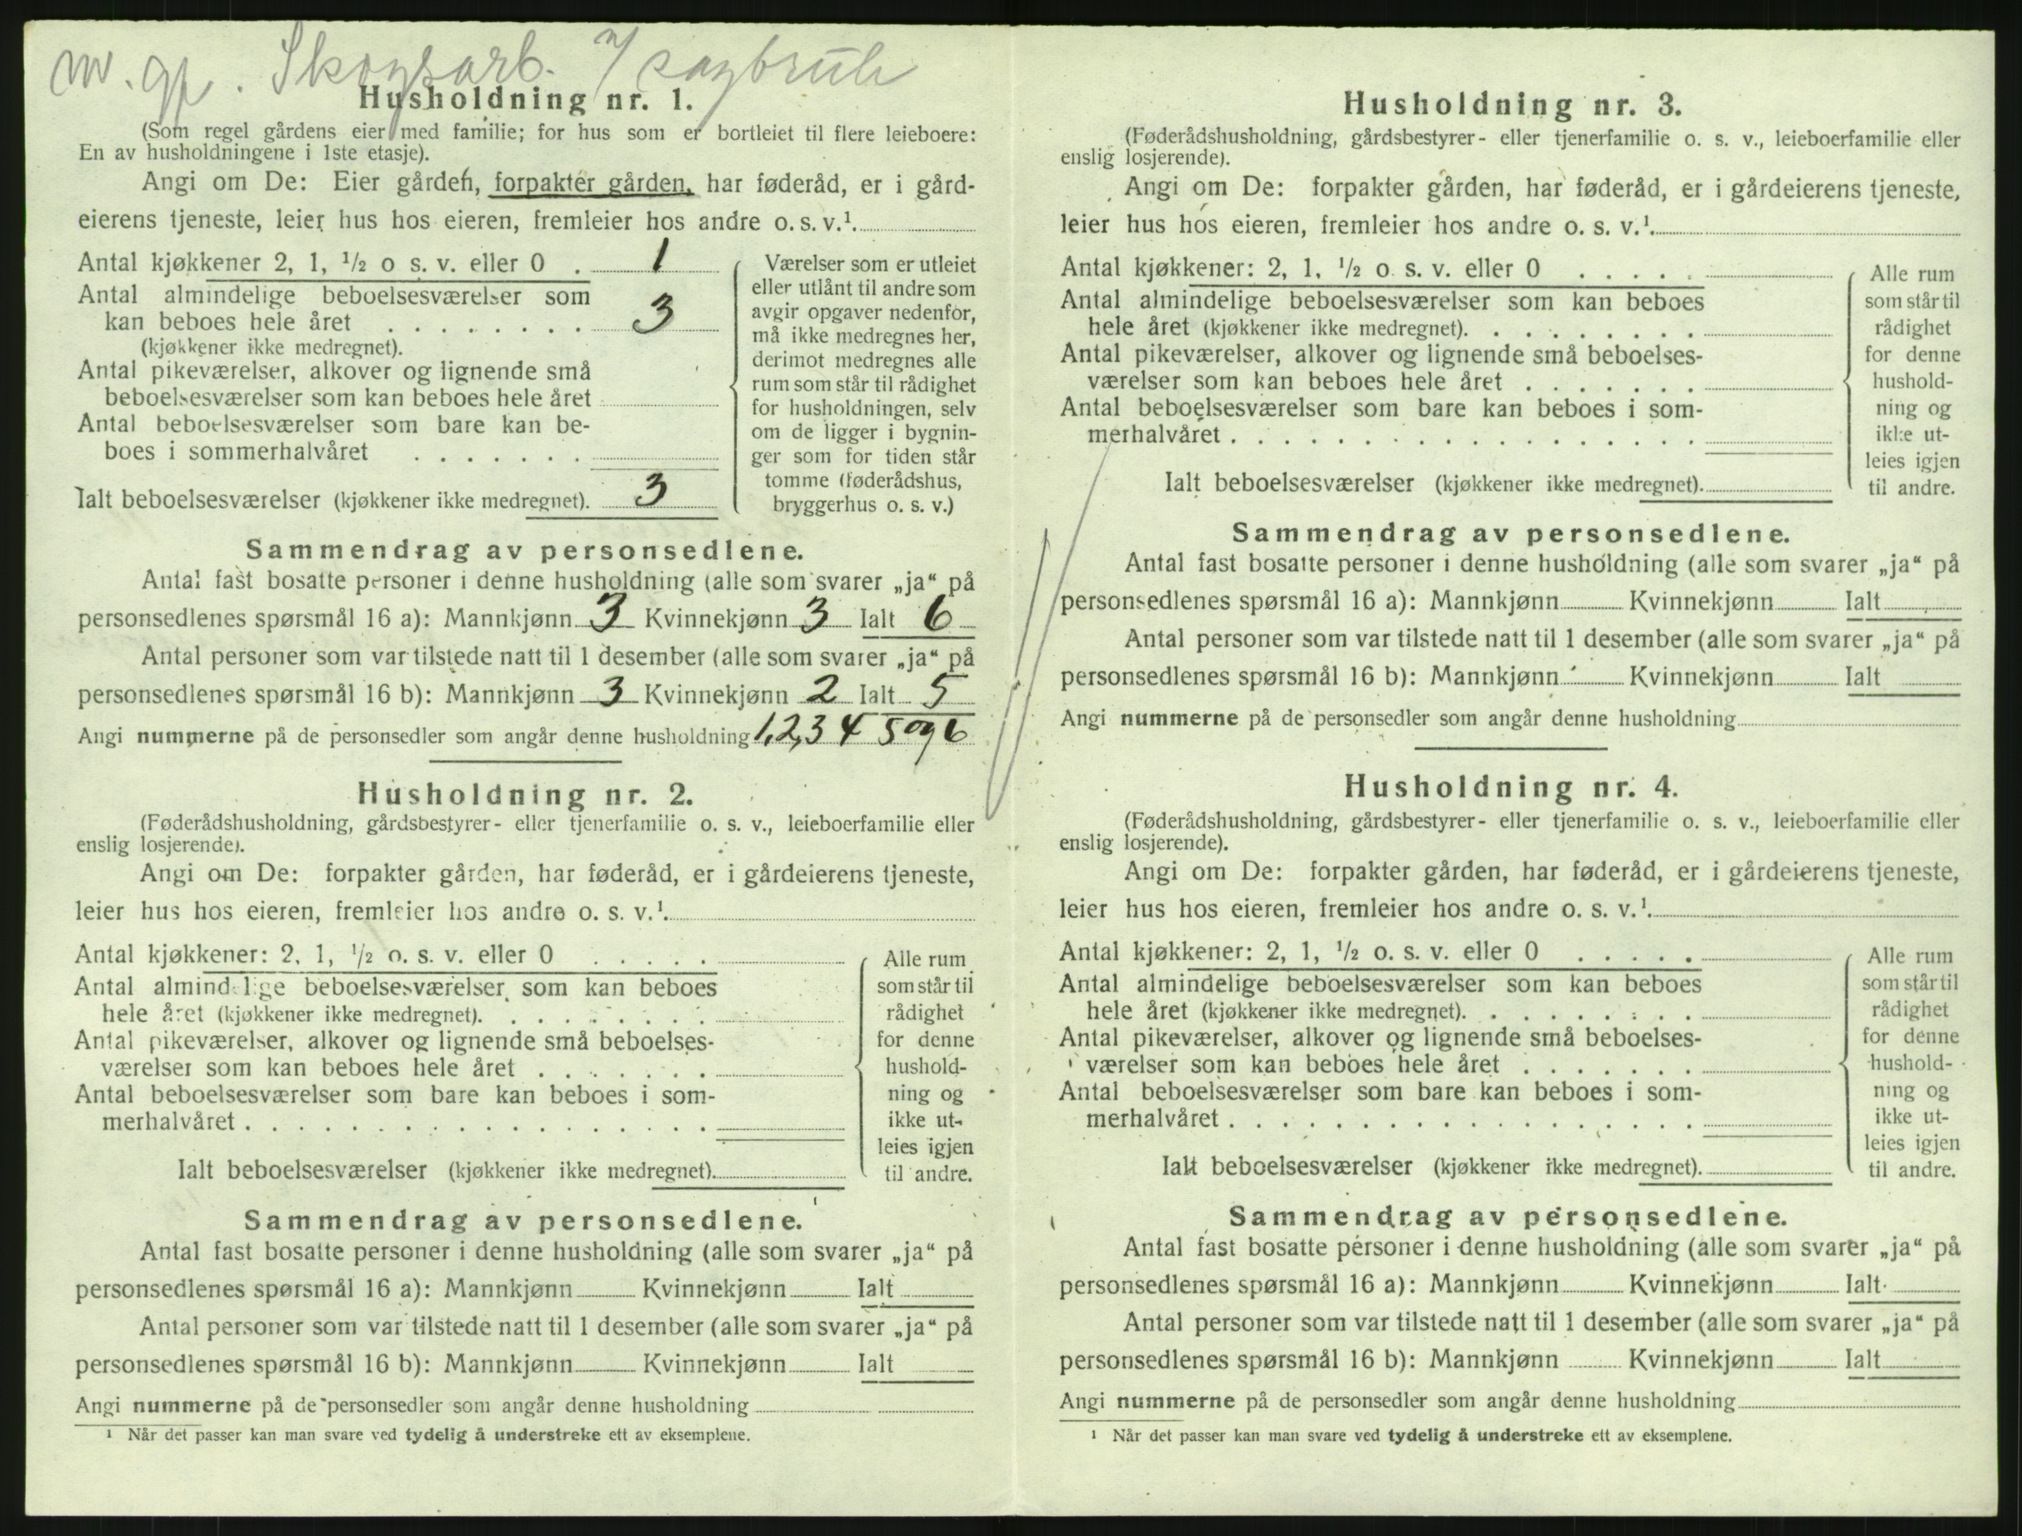 m. gp. Skogsarb. v/ sagbruk
Husholdning nr. 1.
(Som regel gårdens eier med familie; for hus som er bortleiet til flere leieboere:
En av husholdningene i 1ste etasje).
Angi om De: Eier gården, forpakter gården, har føderåd, er i gård-
eierens tjeneste, leier hus hos eieren, fremleier hos andre o. s. v.¹
Antal kjøkkener 2, 1, ½ o s. v. eller 0 . 1
Antal almindelige beboelsesværelser som
kan beboes hele året . . . . . . . . 3
(kjøkkener ikke medregnet).
Antal pikeværelser, alkover og lignende små
beboelsesværelser som kan beboes hele året
Antal beboelsesværelser som bare kan be-
boes i sommerhalvåret . . . . . . .
Ialt beboelsesværelser (kjøkkener ikke medregnet). 3
Værelser som er utleiet
eller utlånt til andre som
avgir opgaver nedenfor,
må ikke medregnes her,
derimot medregnes alle
rum som står til rådighet
for husholdningen, selv
om de ligger i bygnin-
ger som for tiden står
tomme (føderådshus,
bryggerhus o. s. v.)
Sammendrag av personsedlene.
Antal fast bosatte personer i denne husholdning (alle som svarer „ja“ på
personsedlenes spørsmål 16 a): Mannkjønn 3 Kvinnekjønn 3 Ialt 6
Antal personer som var tilstede natt til 1 desember (alle som svarer „ja“ på
personsedlenes spørsmål 16 b): Mannkjønn 3 Kvinnekjønn 2 Ialt 5
Angi nummerne på de personsedler som angår denne husholdning 1,2,3 4 5 og 6
Husholdning nr. 2.
(Føderådshusholdning, gårdsbestyrer- eller tjenerfamilie o. s. v., leieboerfamilie eller
enslig losjerende).
Angi om De: forpakter gården, har føderåd, er i gårdeierens tjeneste,
leier hus hos eieren, fremleier hos andre o. s. v.¹.
Antal kjøkkener: 2, 1, ½ o. s. v. eller 0 . . . . .
Antal almindelige beboelsesværelser som kan beboes
hele året (kjøkkener ikke medregnet). . . . . . . . .
Antal pikeværelser, alkover og lignende små beboelses-
værelser som kan beboes hele året . . . . . . .
Antal beboelsesværelser som bare kan beboes i som-
merhalvåret . . . . . . . . . . . . . . . . . .
Ialt beboelsesværelser (kjøkkener ikke medregnet).
Alle rum
som står til
rådighet
for denne
hushold-
ning og
ikke ut-
leies igjen
til andre.
Sammendrag av personsedlene.
Antal fast bosatte personer i denne husholdning (alle som svarer „ja“ på
personsedlenes spørsmål 16 a): Mannkjønn Kvinnekjønn Ialt
Antal personer som var tilstede natt til 1 desember (alle som svarer „ja“ på
personsedlenes spørsmål 16 b): Mannkjønn Kvinnekjønn Ialt
Angi nummerne på de personsedler som angår denne husholdning
¹ Når det passer kan man svare ved tydelig å understreke ett av eksemplene.
Husholdning nr. 3.
(Føderådshusholdning, gårdsbestyrer- eller tjenerfamilie o. s. v., leieboerfamilie eller
enslig losjerende).
Angi om De: forpakter gården, har føderåd, er i gårdeierens tjeneste,
leier hus hos eieren, fremleier hos andre o. s. v.¹.
Antal kjøkkener: 2, 1, ½ o. s. v. eller 0 . . . . .
Antal almindelige beboelsesværelser som kan beboes
hele året (kjøkkener ikke medregnet). . . . . . . . .
Antal pikeværelser, alkover og lignende små beboelses-
værelser som kan beboes hele året . . . . . . .
Antal beboelsesværelser som bare kan beboes i som-
merhalvåret . . . . . . . . . . . . . . . . . .
Ialt beboelsesværelser (kjøkkener ikke medregnet).
Alle rum
som står til
rådighet
for denne
hushold-
ning og
ikke ut-
leies igjen
til andre.
Sammendrag av personsedlene.
Antal fast bosatte personer i denne husholdning (alle som svarer „ja“ på
personsedlenes spørsmål 16 a): Mannkjønn Kvinnekjønn Ialt
Antal personer som var tilstede natt til 1 desember (alle som svarer „ja“ på
personsedlenes spørsmål 16 b): Mannkjønn Kvinnekjønn Ialt
Angi nummerne på de personsedler som angår denne husholdning
Husholdning nr. 4.
(Føderådshusholdning, gårdsbestyrer- eller tjenerfamilie o. s. v., leieboerfamilie eller
enslig losjerende).
Angi om De: forpakter gården, har føderåd, er i gårdeierens tjeneste,
leier hus hos eieren, fremleier hos andre o. s. v.¹.
Antal kjøkkener: 2, 1, ½ o. s. v. eller 0 . . . . .
Antal almindelige beboelsesværelser som kan beboes
hele året (kjøkkener ikke medregnet). . . . . . . . .
Antal pikeværelser, alkover og lignende små beboelses-
værelser som kan beboes hele året . . . . . . .
Antal beboelsesværelser som bare kan beboes i som-
merhalvåret . . . . . . . . . . . . . . . . . .
Ialt beboelsesværelser (kjøkkener ikke medregnet).
Alle rum
som står til
rådighet
for denne
hushold-
ning og
ikke ut-
leies igjen
til andre.
Sammendrag av personsedlene.
Antal fast bosatte personer i denne husholdning (alle som svarer „ja“ på
personsedlenes spørsmål 16 a): Mannkjønn Kvinnekjønn Ialt
Antal personer som var tilstede natt til 1 desember (alle som svarer „ja“ på
personsedlenes spørsmål 16 b): Mannkjønn Kvinnekjønn Ialt
Angi nummerne på de personsedler som angår denne husholdning
¹ Når det passer kan man svare ved tydelig å understreke ett av eksemplene.